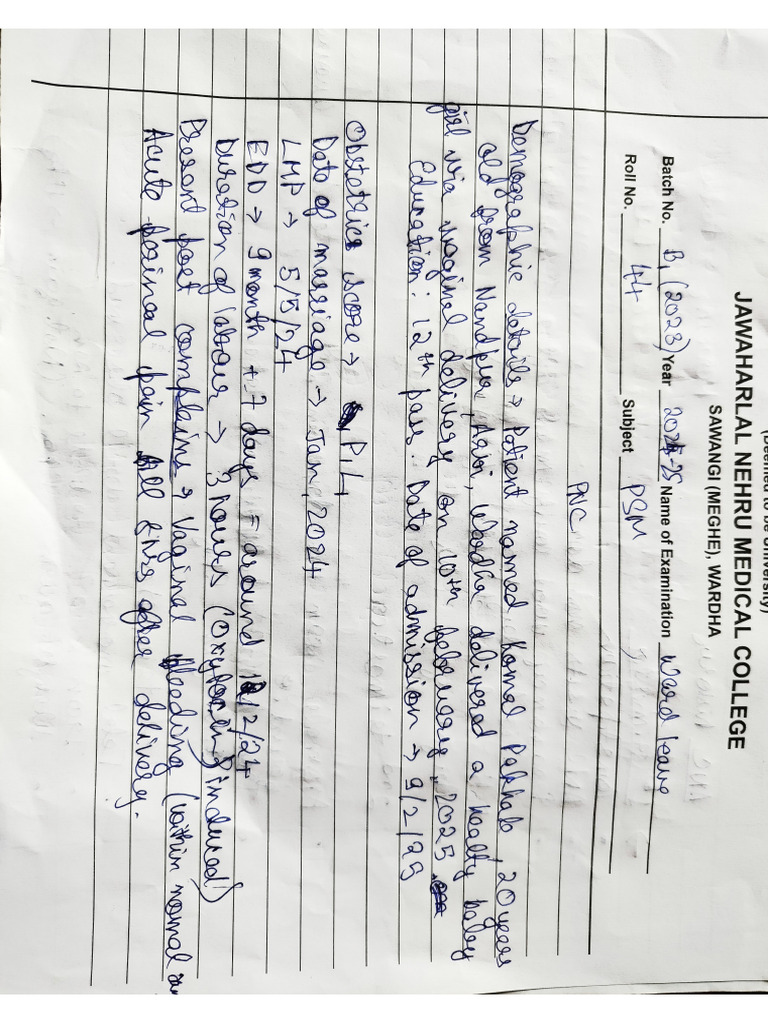 (Deemed to be University)
JAWAHARLAL NEHRU MEDICAL COLLEGE
SAWANGI (MEGHE), WARDHA
Batch No. B1 (2023) Year 2024-25 Name of Examination Ward leave
Roll No. 44 Subject PSM
PNC
Demographic details → Patient named Komal Pakhale, 20 years
old from Nandpur, Arvi, Wardha delivered a healty baby
girl via vaginal delivery on 10th february, 2025.
Education: 12th pass. Date of admission → 9/2/25
Obstetrics score → P1L1
Date of marriage → Jan, 2024
LMP → 5/5/24
EDD → 9 month + 7 days = around 12/2/24
Duration of labour → 3 hours (Oxytocin induced)
Present post complains → Vaginal bleeding (within normal
Acute perineal pain till 8 hrs after delivery.